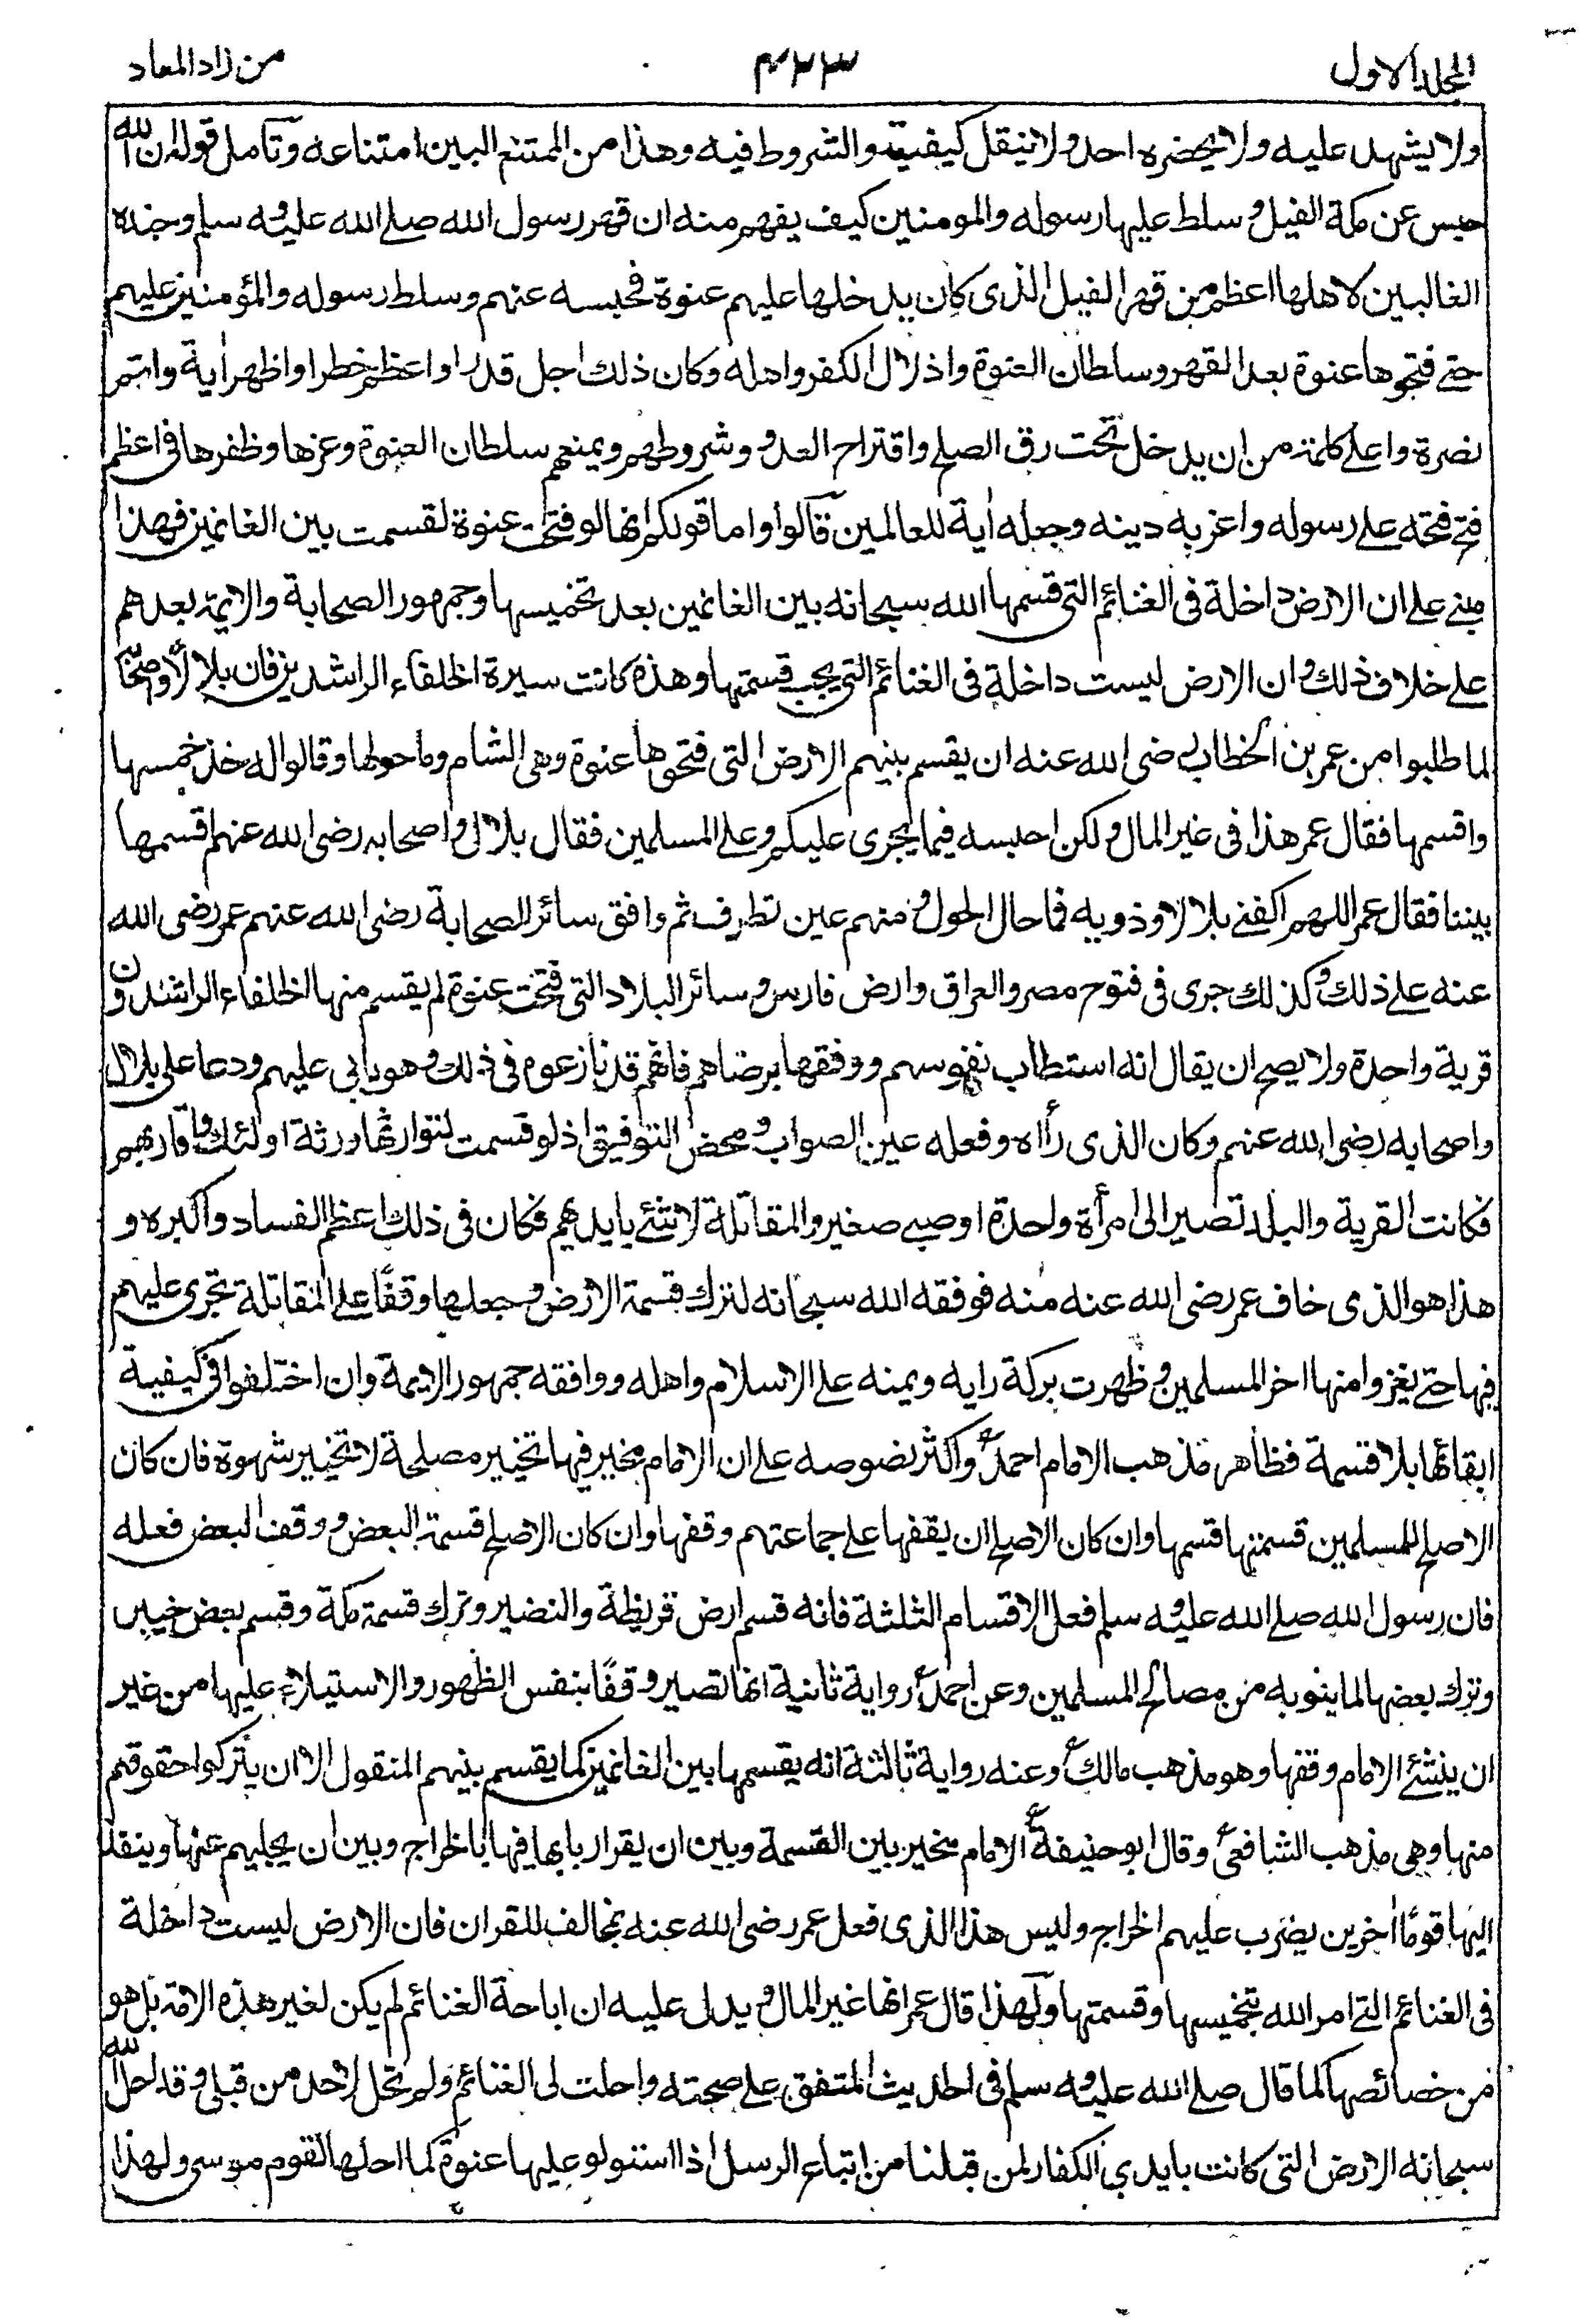 المجلد الاول ۴۲۳ من زاد المعاد
ولا يشهد عليه ولا يحضره احد ولا ينقل كيفيته والشروط فيه وهذا من الممتنع البين امتناعه وتأمل قوله ان الله
حبس عن مكة الفيل وسلط عليها رسوله والمومنين كيف يفهم منه ان قهر رسول الله صلے الله عليه وسلم وجنده
الغالبين لاهلها اعظم من قهر الفيل الذى كان يدخلها عليهم عنوة فحبسه عنهم وسلط رسوله والمؤمنين عليهم
حتے فتحوها عنوة بعد القهر وسلطان العنوة واذلال الكفر واهله وكان ذلك اجل قدرا واعظم خطرا واظهر اٰية واتم
نصرة واعلے كلمة من ان يدخل تحت رق الصلح واقتراح العدو وشروطهم ويمنعهم سلطان العنوة وعزها وظفرها فى اعظم
فتح فتحه علے رسوله واعز به دينه وجعله اٰية للعالمين قالوا واما قولكم انها لو فتحت عنوة لقسمت بين الغانمين فهذا
مبنے علے ان الارض داخلة فى الغنائم التى قسمها الله سبحانه بين الغانمين بعد تخميسها وجمهور الصحابة والايمة بعدهم
علے خلاف ذلك وان الارض ليست داخلة فى الغنائم التى يجب قسمتها وهذه كانت سيرة الخلفاء الراشدين فان بلالا واصحابه
لما طلبوا من عمر بن الخطاب رضى الله عنه ان يقسم بينهم الارض التى فتحوها عنوة وهى الشام وما حولها وقالوا له خذ خمسها
واقسمها فقال عمر هذا فى غير المال ولكن احبسه فيما يجرى عليكم وعلے المسلمين فقال بلال واصحابه رضى الله عنهم اقسمها
بيننا فقال عمر اللهم اكفنے بلالا وذويه فما حال الحول ومنهم عين تطرف ثم وافق سائر الصحابة رضى الله عنهم عمر رضى الله
عنه علے ذلك وكذلك جرى فى فتوح مصر والعراق وارض فارس وسائر البلاد التى فتحت عنوة لم يقسم منها الخلفاء الراشدون
قرية واحدة ولا يصح ان يقال انه استطاب نفوسهم ووقفها برضاهم فانهم قد نازعوه فى ذلك وهو يابى عليهم ودعا على بلال
واصحابه رضى الله عنهم وكان الذى رأاه وفعله عين الصواب ومحض التوفيق اذ لو قسمت لتوارثها ورثة اولئك واقاربهم
فكانت القرية والبلد تصير الى امرأة واحدة او صبے صغير والمقاتلة لا شئے بايديهم فكان فى ذلك اعظم الفساد واكبره و
هذا هو الذى خاف عمر رضى الله عنه منه فوفقه الله سبحانه لترك قسمة الارض وجعلها وقفًا علے المقاتلة تجرى عليهم
فيها حتے يغزوا منها اخر المسلمين وظهرت بركة رايه ويمنه علے الاسلام واهله ووافقه جمهور الايمة وان اختلفوا فى كيفية
ابقائها بلا قسمة فظاهر مذهب الامام احمد واكثر نصوصه علے ان الامام مخير فيها تخيير مصلحة لا تخيير شهوة فان كان
الاصلح للمسلمين قسمتها قسمها وان كان الاصلح ان يقفها علے جماعتهم وقفها وان كان الاصلح قسمة البعض ووقف البعض فعله
فان رسول الله صلے الله عليه وسلم فعل الاقسام الثلثة فانه قسم ارض قريظة والنضير وترك قسمة مكة وقسم بعض خيبر
وترك بعضها لما ينوبه من مصالح المسلمين وعن احمد رواية ثانية انها تصير وقفًا بنفس الظهور والاستيلاء عليها من غير
ان ينشئے الامام وقفها وهو مذهب مالك وعنه رواية ثالثة انه يقسمها بين الغانمين كما يقسم بينهم المنقول الا ان يتركوا حقوقهم
منها وهى مذهب الشافعى وقال ابو حنيفة الامام مخير بين القسمة وبين ان يقر اربابها فيها بالخراج وبين ان يجليهم عنها وينفذ
اليها قومًا اٰخرين يضرب عليهم الخراج وليس هذا الذى فعل عمر رضى الله عنه بمخالف للقران فان الارض ليست داخلة
فى الغنائم التے امر الله بتخميسها وقسمتها ولهذا قال عمر انها غير المال ويدل عليه ان اباحة الغنائم لم يكن لغير هذه الامة بل هو
من خصائصها كما قال صلے الله عليه وسلم فى الحديث المتفق علے صحته واحلت لى الغنائم ولم تحل لاحد من قبلى وقد احل الله
سبحانه الارض التى كانت بايدى الكفار لمن قبلنا من اتباع الرسل اذا استولو عليها عنوة كما احلها لقوم موسى ولهذا